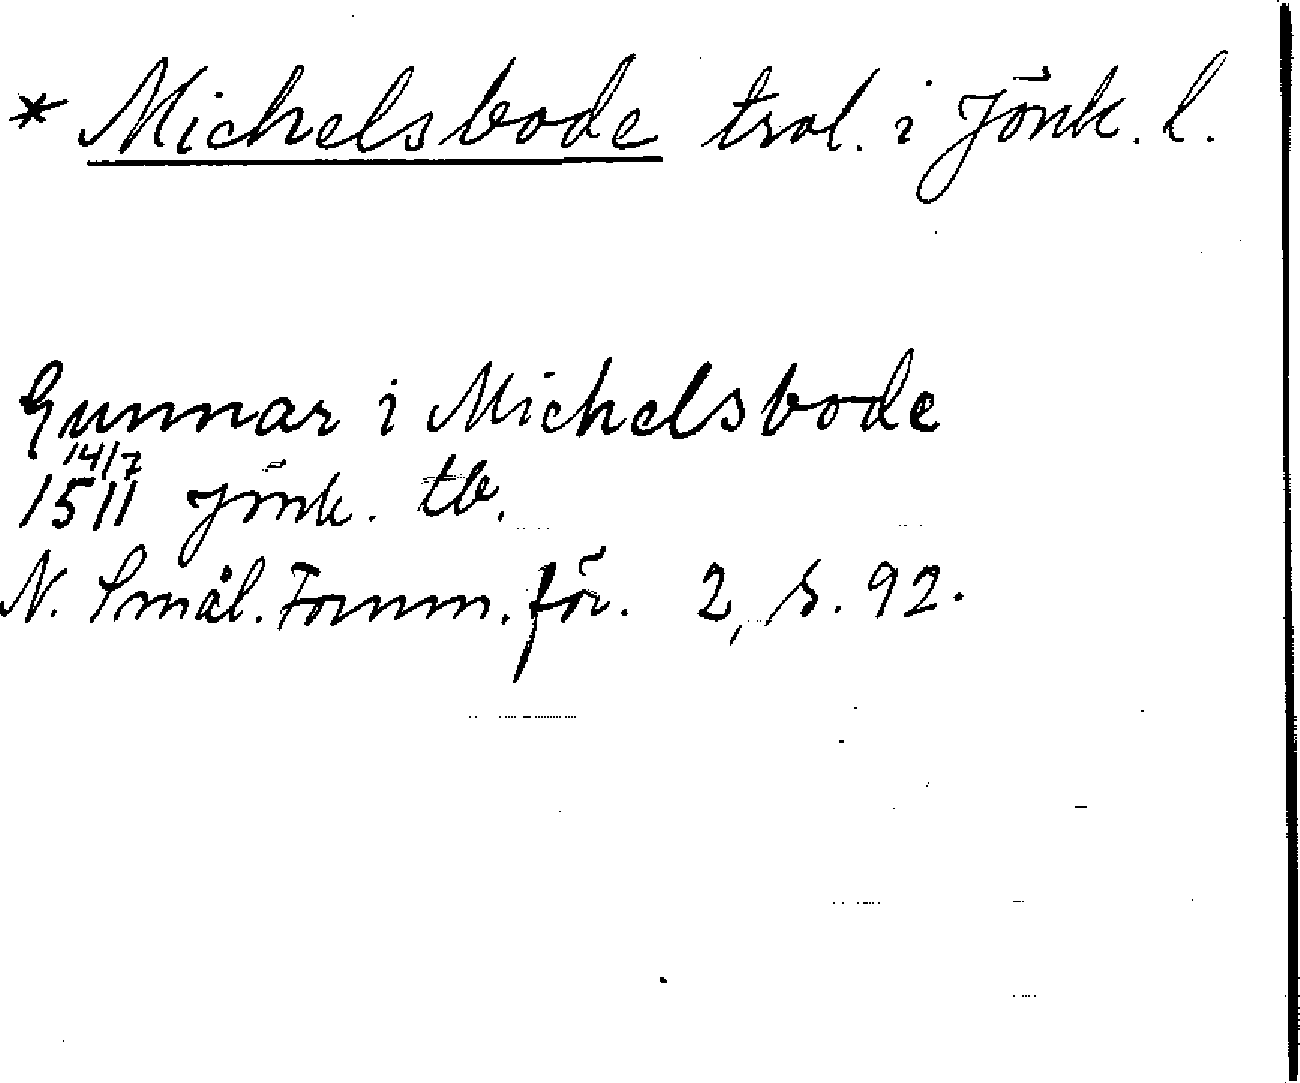 * Michelsbode trol. i Jönk. l.
Gunnar i Michelsbode
14/7
1511 Jönk. tb.
N. Smål. Fornm. för. 2, s. 92.